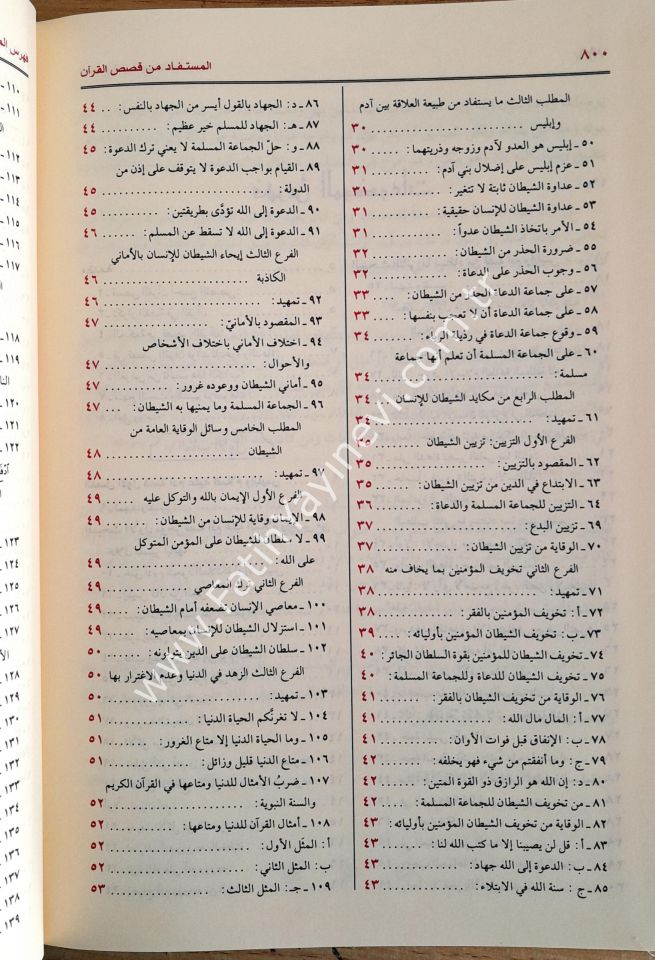 ٨٠٠
المستفاد من قصص القرآن
المطلب الثالث ما يستفاد من طبيعة العلاقة بين آدم
وإبليس ........................ ٣٠
٥٠ ـ إبليس هو العدو لآدم وزوجه وذريتهما : ..... ٣٠
٥١ ـ عزم إبليس على إضلال بني آدم: ........... ٣١
٥٢ ـ عداوة الشيطان ثابتة لا تتغير: ............ ٣١
٥٣ ـ عداوة الشيطان للإنسان حقيقية: .......... ٣١
٥٤ ـ الأمر باتخاذ الشيطان عدواً: ............. ٣١
٥٥ ـ ضرورة الحذر من الشيطان: ............. ٣٢
٥٦ ـ وجوب الحذر على الدعاة: .............. ٣٢
٥٧ ـ على جماعة الدعاة الحذر من الشيطان: ..... ٣٣
٥٨ ـ على جماعة الدعاة أن لا تعجب بنفسها: .... ٣٣
٥٩ ـ وقوع جماعة الدعاة في رذيلة الرياء: ....... ٣٤
٦٠ ـ على الجماعة المسلمة أن تعلم أنها جماعة
مسلمة: ....................... ٣٤
المطلب الرابع من مكايد الشيطان للإنسان ٣٤
٦١ ـ تمهيد: ............................ ٣٤
الفرع الأول التزيين: تزيين الشيطان ..... ٣٥
٦٢ ـ المقصود بالتزيين: .................... ٣٥
٦٣ ـ الابتداع في الدين من تزيين الشيطان: ...... ٣٥
٦٤ ـ التزيين للجماعة المسلمة والدعاة: ......... ٣٦
٦٩ ـ تزيين البدع: ........................ ٣٧
٧٠ ـ الوقاية من تزيين الشيطان: .............. ٣٧
الفرع الثاني تخويف المؤمنين بما يخاف منه ٣٨
٧١ ـ تمهيد: ............................ ٣٨
٧٢ ـ أ: تخويف المؤمنين بالفقر: .............. ٣٨
٧٣ ـ ب: تخويف الشيطان المؤمنين بأوليائه: .... ٣٩
٧٤ ـ تخويف الشيطان للمؤمنين بقوة السلطان الجائر: ٤٠
٧٥ ـ تخويف الشيطان للدعاة وللجماعة المسلمة: .. ٤٠
٧٦ ـ الوقاية من تخويف الشيطان بالفقر: ........ ٤١
٧٧ ـ أ: المال مال الله: .................... ٤١
٧٨ ـ ب: الإنفاق قبل فوات الأوان: ........... ٤١
٧٩ ـ ج: وما أنفقتم من شيء فهو يخلفه: ....... ٤٢
٨٠ ـ د: إن الله هو الرازق ذو القوة المتين: ...... ٤٢
٨١ ـ من تخويف الشيطان للجماعة المسلمة: ..... ٤٢
٨٢ ـ الوقاية من تخويف الشيطان المؤمنين بأوليائه: ٤٣
٨٣ ـ أ: قل لن يصيبنا إلا ما كتب الله لنا: ....... ٤٣
٨٤ ـ ب: الدعوة إلى الله جهاد: .............. ٤٣
٨٥ ـ ج: سنة الله في الابتلاء: ............... ٤٣
٨٦ ـ د: الجهاد بالقول أيسر من الجهاد بالنفس: .. ٤٤
٨٧ ـ هـ: الجهاد للمسلم خير عظيم: ........... ٤٤
٨٨ ـ و: حلّ الجماعة المسلمة لا يعني ترك الدعوة: ٤٥
٨٩ ـ القيام بواجب الدعوة لا يتوقف على إذن من
الدولة: ........................ ٤٥
٩٠ ـ الدعوة إلى الله تؤدَّى بطريقتين: .......... ٤٥
٩١ ـ الدعوة إلى الله لا تسقط عن المسلم: ...... ٤٦
الفرع الثالث إيحاء الشيطان للإنسان بالأماني
الكاذبة ........................ ٤٦
٩٢ ـ تمهيد: ............................ ٤٦
٩٣ ـ المقصود بالأمانيّ: .................... ٤٧
٩٤ ـ اختلاف الأماني باختلاف الأشخاص
والأحوال: ....................... ٤٧
٩٥ ـ أماني الشيطان ووعوده غرور: ........... ٤٧
٩٦ ـ الجماعة المسلمة وما يمنيها به الشيطان: ... ٤٧
المطلب الخامس وسائل الوقاية العامة من
الشيطان ........................ ٤٨
٩٧ ـ تمهيد: ............................ ٤٨
الفرع الأول الإيمان بالله والتوكل عليه ..... ٤٩
٩٨ ـ الإيمان وقاية للإنسان من الشيطان: ....... ٤٩
٩٩ ـ لا سلطان للشيطان على المؤمن المتوكل
على الله: ....................... ٤٩
الفرع الثاني ترك المعاصي ............ ٤٩
١٠٠ ـ معاصي الإنسان تضعفه أمام الشيطان: ..... ٤٩
١٠١ ـ استزلال الشيطان للإنسان بمعاصيه: ....... ٤٩
١٠٢ ـ سلطان الشيطان على الذين يتولونه: ....... ٥٠
الفرع الثالث الزهد في الدنيا وعدم الاغترار بها ٥٠
١٠٣ ـ تمهيد: ............................ ٥٠
١٠٤ ـ لا تغرنَّكم الحياة الدنيا: ............... ٥١
١٠٥ ـ وما الحياة الدنيا إلا متاع الغرور: ........ ٥١
١٠٦ ـ متاع الدنيا قليل وزائل: ............... ٥١
١٠٧ ـ ضربُ الأمثال للدنيا ومتاعها في القرآن الكريم
والسنة النبوية: ................... ٥٢
١٠٨ ـ أمثال القرآن للدنيا ومتاعها: ............ ٥٢
أ: المثَل الأول: .................... ٥٢
ب: المثل الثاني: ................... ٥٢
١٠٩ ـ جـ: المثل الثالث: .................... ٥٣
www.Fatihyayinevi.com.tr
١١٠ ـ
١١١ ـ
١١٢ ـ
١١٣ ـ
١١٤ ـ
١١٥ ـ
١١٦ ـ
١١٧ ـ
١١٨ ـ
١١٩ ـ
١٢٠ ـ
١٢١ ـ
١٢٢ ـ
١٢٣ ـ
١٢٤ ـ
١٢٥ ـ
١٢٦ ـ
١٢٧ ـ
١٢٨ ـ
١٢٩ ـ
١٣٠ ـ
١٣١ ـ
١٣٢ ـ
١٣٣ ـ
١٣٤ ـ
١٣٥ ـ
١٣٦ ـ
١٣٧ ـ
١٣٨ ـ
١٣٩ ـ